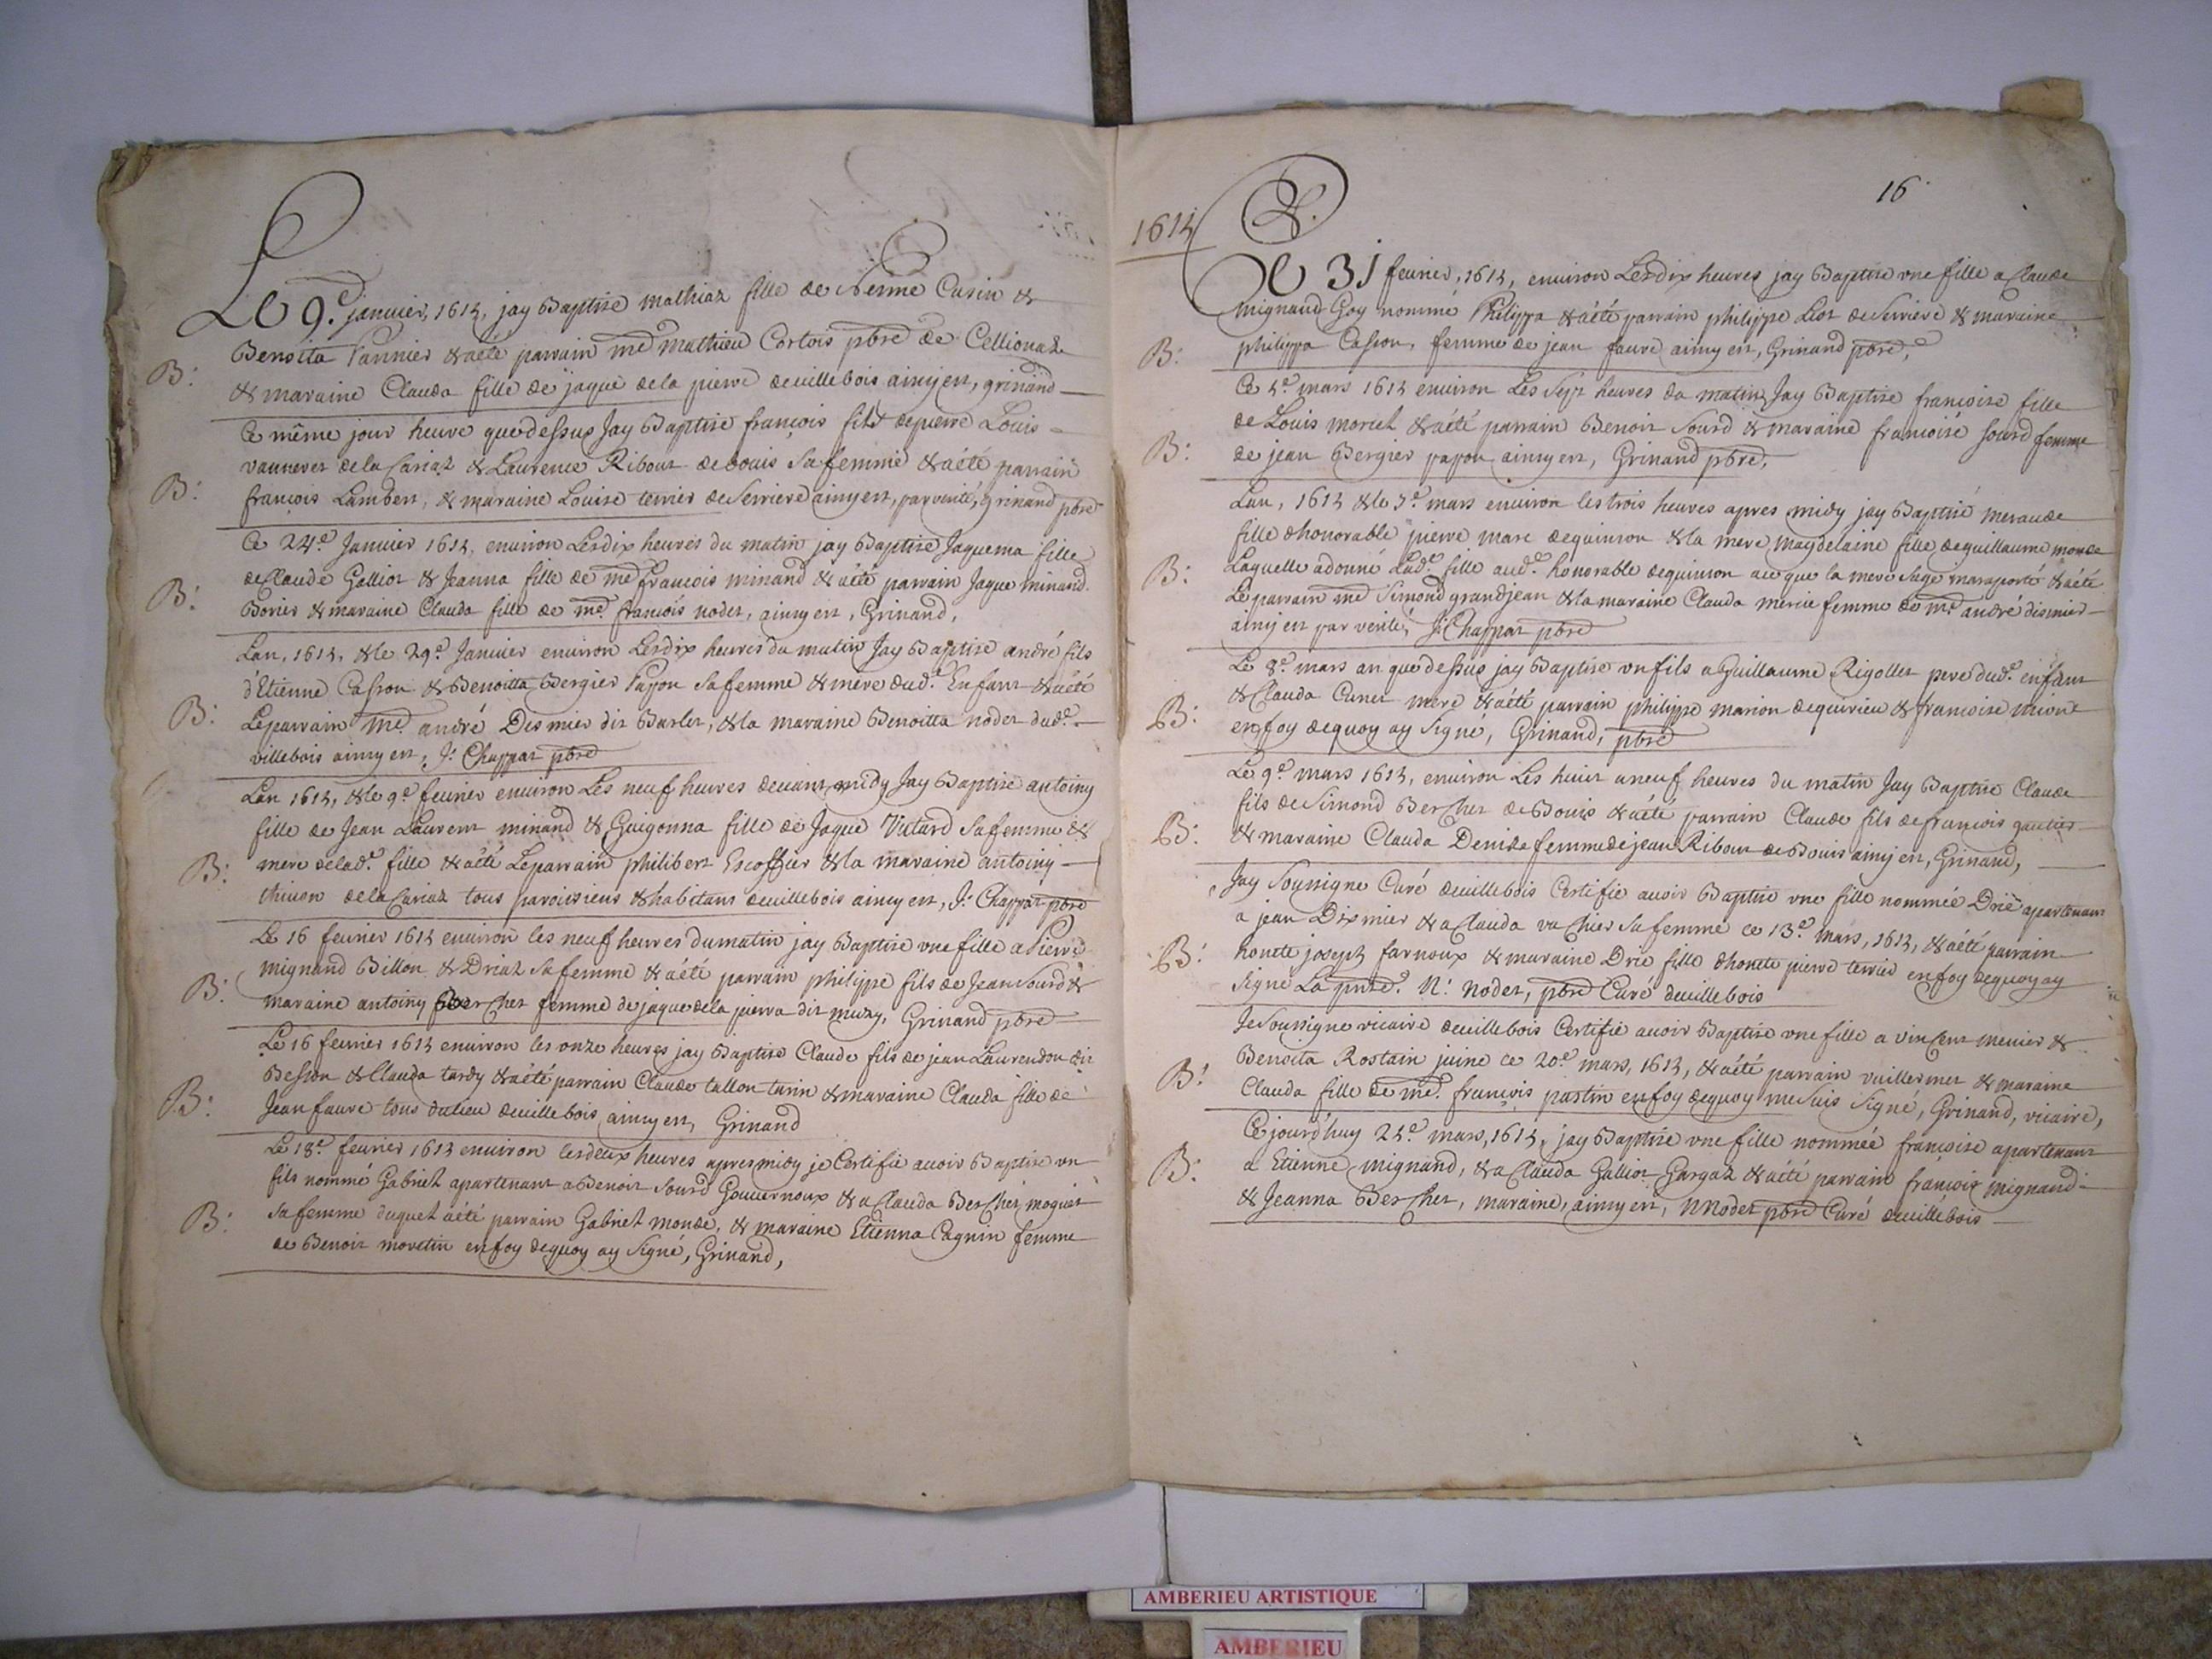 Le 9.e janvier, 1614, jay Baptise mathiaz fille de Neime Cusin &
Benoita Pannier & aété parrain me Mathieu Cortois pbre de Cellionaz
B:
& maraine Clauda fille de jaque dela pierre deuillebois ainsy est, grinand
Ce même jour heure que dessus Jay Baptise françois fils depierre Louis
vanneret dela Cariaz & Laurence Ribout de bouis Sa femme & aété parrain
B:
françois Lambert, & maraine Louise terrier de Serriere ainsy est, par verité, grinand pbre
Ce 24.e Januier 1614, enuiron Lesdix heures du matin jay Baptise Jaquema fille
de Claude Galliot & Jeanna fille de me françois minand & aété parrain Jaque minand
B:
Borier & maraine Clauda fille de me. françois nodet, ainsy est, Grinand,
Lan, 1614, & le 29.e Januier enuiron Lesdix heures du matin Jay Baptise andré fils
d'Etienne Casson & Benoitta Bergier Papon Sa femme & mere dud.e Enfant & aété
B:
Le parrain Me. andré Desmier dit Barlet, & la maraine Benoitta nodet dud.e
villebois ainsy est, J: Chappat pbre
Lan 1614, & le 9.e feurier enuiron Les neuf heures deuant midy Jay Baptise antoiny
fille de Jean Laurent minand & Guigonna fille de Jaque Vittard Sa femme &
B:
mere delad.e fille & aété Le parrain philibert Escoffier & la maraine antoiny
thiuon dela Cariaz tous paroissiens & habitans deuillebois ainsy est, J: Chappat pbre
Le 16 feurier 1614 enuiron les neuf heures dumatin jay Baptise vne fille a Pierre
mignand Billon & Driaz Sa femme & aété parrain philippe fils de Jean Sourd &
B:
maraine antoiny Bercher femme de jaque dela pierra dit muzy, Grinand pbre
Le 16 feurier 1614 enuiron les onze heures jay Baptise Claude fils de jean Laurendon dit
Besson & Clauda tardy & aété parrain Claude tallon tarin & maraine Clauda fille de
B:
Jean faure tous dulieu deuillebois ainsy est, Grinand
Le 18.e feurier 1614 enuiron lesdeux heures apresmidy je Certifie auoir Baptise vn
fils nommé Gabriel apartenant a Benoit Sourd Gouuernoux & a Clauda Bercher moguet
B:
Sa femme duquel aété parrain Gabriel monde, & maraine Etienna Cagnin femme
de Benoit moretin enfoy dequoy ay Signé, Grinand,
16
1614
Le 31 feurier, 1614, enuiron Lesdix heures jay Baptise vne fille a Claude
mignand Goy nommé Philippa & aété parrain philippe Liot de Serriere & maraine
B:
philippa Casson, femme de jean faure ainsy est, Grinand pbre,
Ce 4.e mars 1614 enuiron Les Sept heures du matin Jay Baptise françoise fille
de Louis moriet & aété parrain Benoit Sourd & maraine françoise Sourd femme
B:
de jean Bergier papon ainsy est, Grinand pbre,
Lan, 1614 & le 7.e mars enuiron les trois heures apres midy jay Baptisé meraude
fille dhonorable pierre marc dequinson & la mere Magdelaine fille deguillaume monde
B:
Laquelle adonné Lad.e fille aud.e honorable dequinson ace que la mere Sage maraporté & aété
Le parrain me Simond grandjean & la maraine Clauda merie femme de me andré dismier
ainsy est par verité, J: Chappat pbre
Le 8.e mars an que dessus jay Baptise vn fils a Guillaume Rigollet pere dud.e enfant
& Clauda Cunet mere & aété parrain philippe marion dequirieu & françoise
B:
en foy dequoy ay Signé, Grinand, pbre
Le 9.e mars 1614, enuiron Les huit aneuf heures du matin Jay Baptise Claude
fils de Simond Bercher de Bouis & aété parrain Claude fils de françois gautier
B:
& maraine Clauda Denise femme de jean Ribout de Bouis ainsy est, Grinand,
Jay Soussigne Curé deuillebois Certifie auoir Baptise vne fille nommée Drie apartenant
a jean Dixmier & a Clauda vachier Sa femme ce 13.e mars, 1614, & aété parrain
B:
honete joseph farnoux & maraine Drie fille dhonete pierre terrier enfoy dequoy ay
Signé La pnte. N: Nodet, pbre Curé deuillebois
Je Soussigne vicaire deuillebois Certifie auoir Baptise vne fille a vincent menier &
Benoita Rostain juine ce 20.e mars, 1614, & aété parrain vuillermet & maraine
B:
Clauda fille de me. françois pastin enfoy dequoy me Suis Signé, Grinand, vicaire,
Ce jourd'huy 24.e mars, 1614, jay Baptise vne fille nommée françoise apartenant
a Etienne mignand, & a Clauda Galliot Gargaz & aété parrain françois mignand
B:
& Jeanna Bercher, maraine, ainsy est, N Nodet pbre Curé deuillebois
AMBERIEU ARTISTIQUE
AMBERIEU